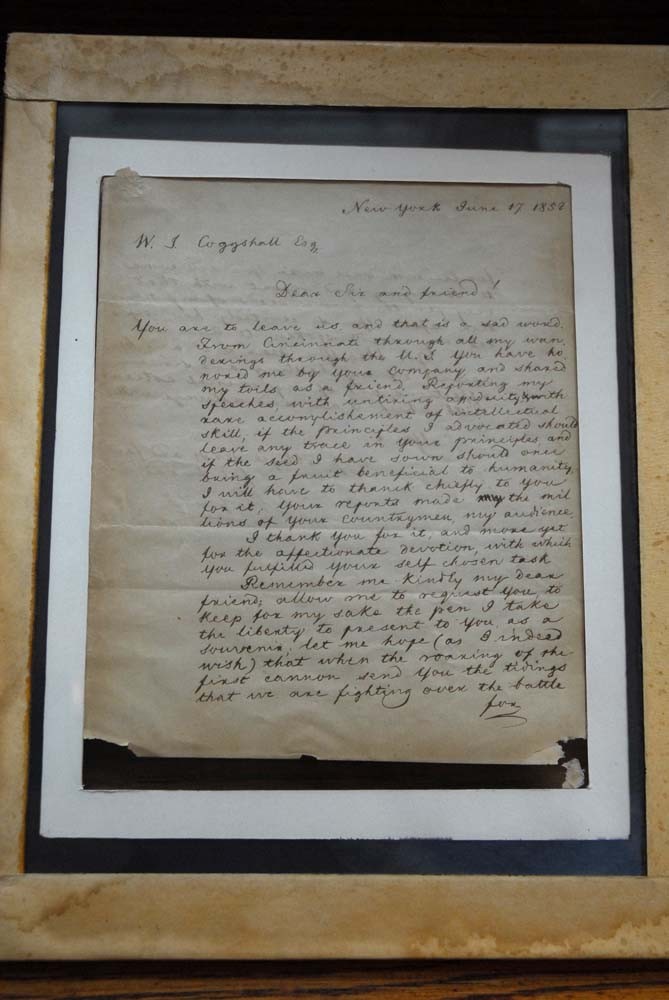 New York June 17 1852
W. T. Coggshall Esq
Dear Sir and friend!
You are to leave us, and that is a sad word.
From Cincinnati through all my wan
derings through the U. S. You have ho
nored me by your company and shared
my toils, as a friend, Reporting my
speeches, with untiring assiduity, & with
rare accomplishement of intellectual
skill, if the principles I advocated should
leave any trace in your principles, and
if the seed I have sown should once
bring a fruit beneficial to humanity,
I will have to thank chiefly to you
for it, Your reports made the mil
lions of Your countrymen, my audience
I thank You for it, and more yet
for the affectionate devotion, with which
you fulfilled Your self chosen task
Remember me kindly my dear
friend; allow me to request You, to
keep for my sake the pen I take
the liberty to present to You, as a
souvenir; let me hope (as I indeed
wish) that when the roaring of the
first cannon send You the tidings
that we are fighting over the battle
for